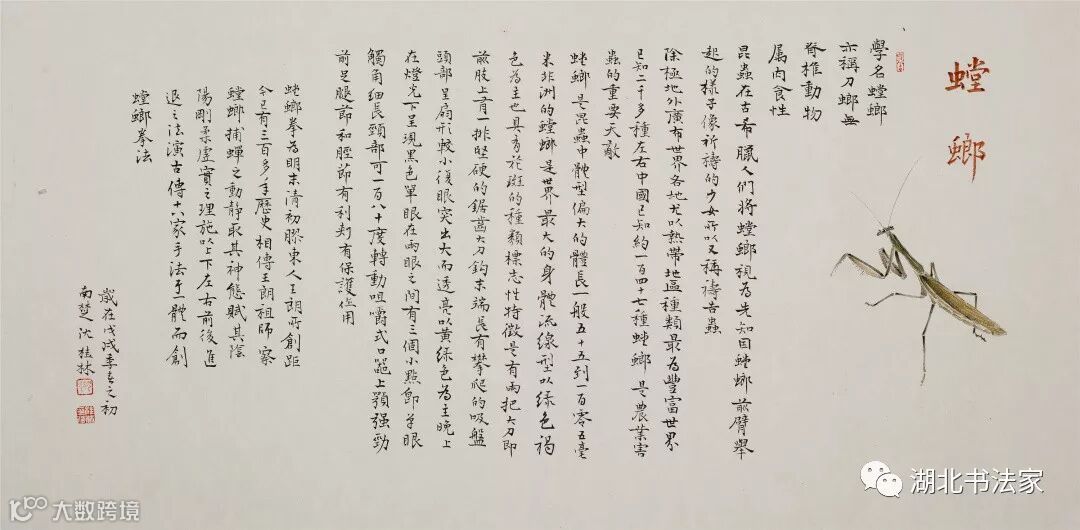 螳螂
學名螳螂
亦稱刀螂無
脊椎動物
属肉食性
昆蟲在古希臘人們將螳螂視為先知因螳螂前臂舉
起的樣子像祈禱的少女所以又稱禱告蟲
除極地外廣布世界各地尤以熱帶地區種類最為豐富世界
已知二千多種左右中國已知約一百四十七種螳螂是農業害
蟲的重要天敵
螳螂是昆蟲中體型偏大的體長一般五十五到一百零五毫
米非洲的螳螂是世界最大的身體流線型以綠色褐
色為主也具有花斑的種類標志性特徵是有兩把大刀即
前肢上有一排堅硬的鋸齒大刀鈎末端長有攀爬的吸盤
頭部呈扇形較小復眼突出大而透亮以黄綠色為主晚上
在燈光下呈現黑色單眼在兩眼之間有三個小點即單眼
觸角細長頸部可一百八十度轉動咀嚼式口器上顎强勁
前足腿節和脛節有利刺有保護作用
螳螂拳為明末清初膠東人王朗所創距
今已有三百多年歷史相傳王朗祖師察
螳螂捕蟬之動静取其神態賦其陰
陽剛柔虚實之理施以上下左右前後進
退之法演古傳十八家手法于一體而創
螳螂拳法
歲在戊戌季春之初
南楚沈桂林
湖北书法家
大数跨境